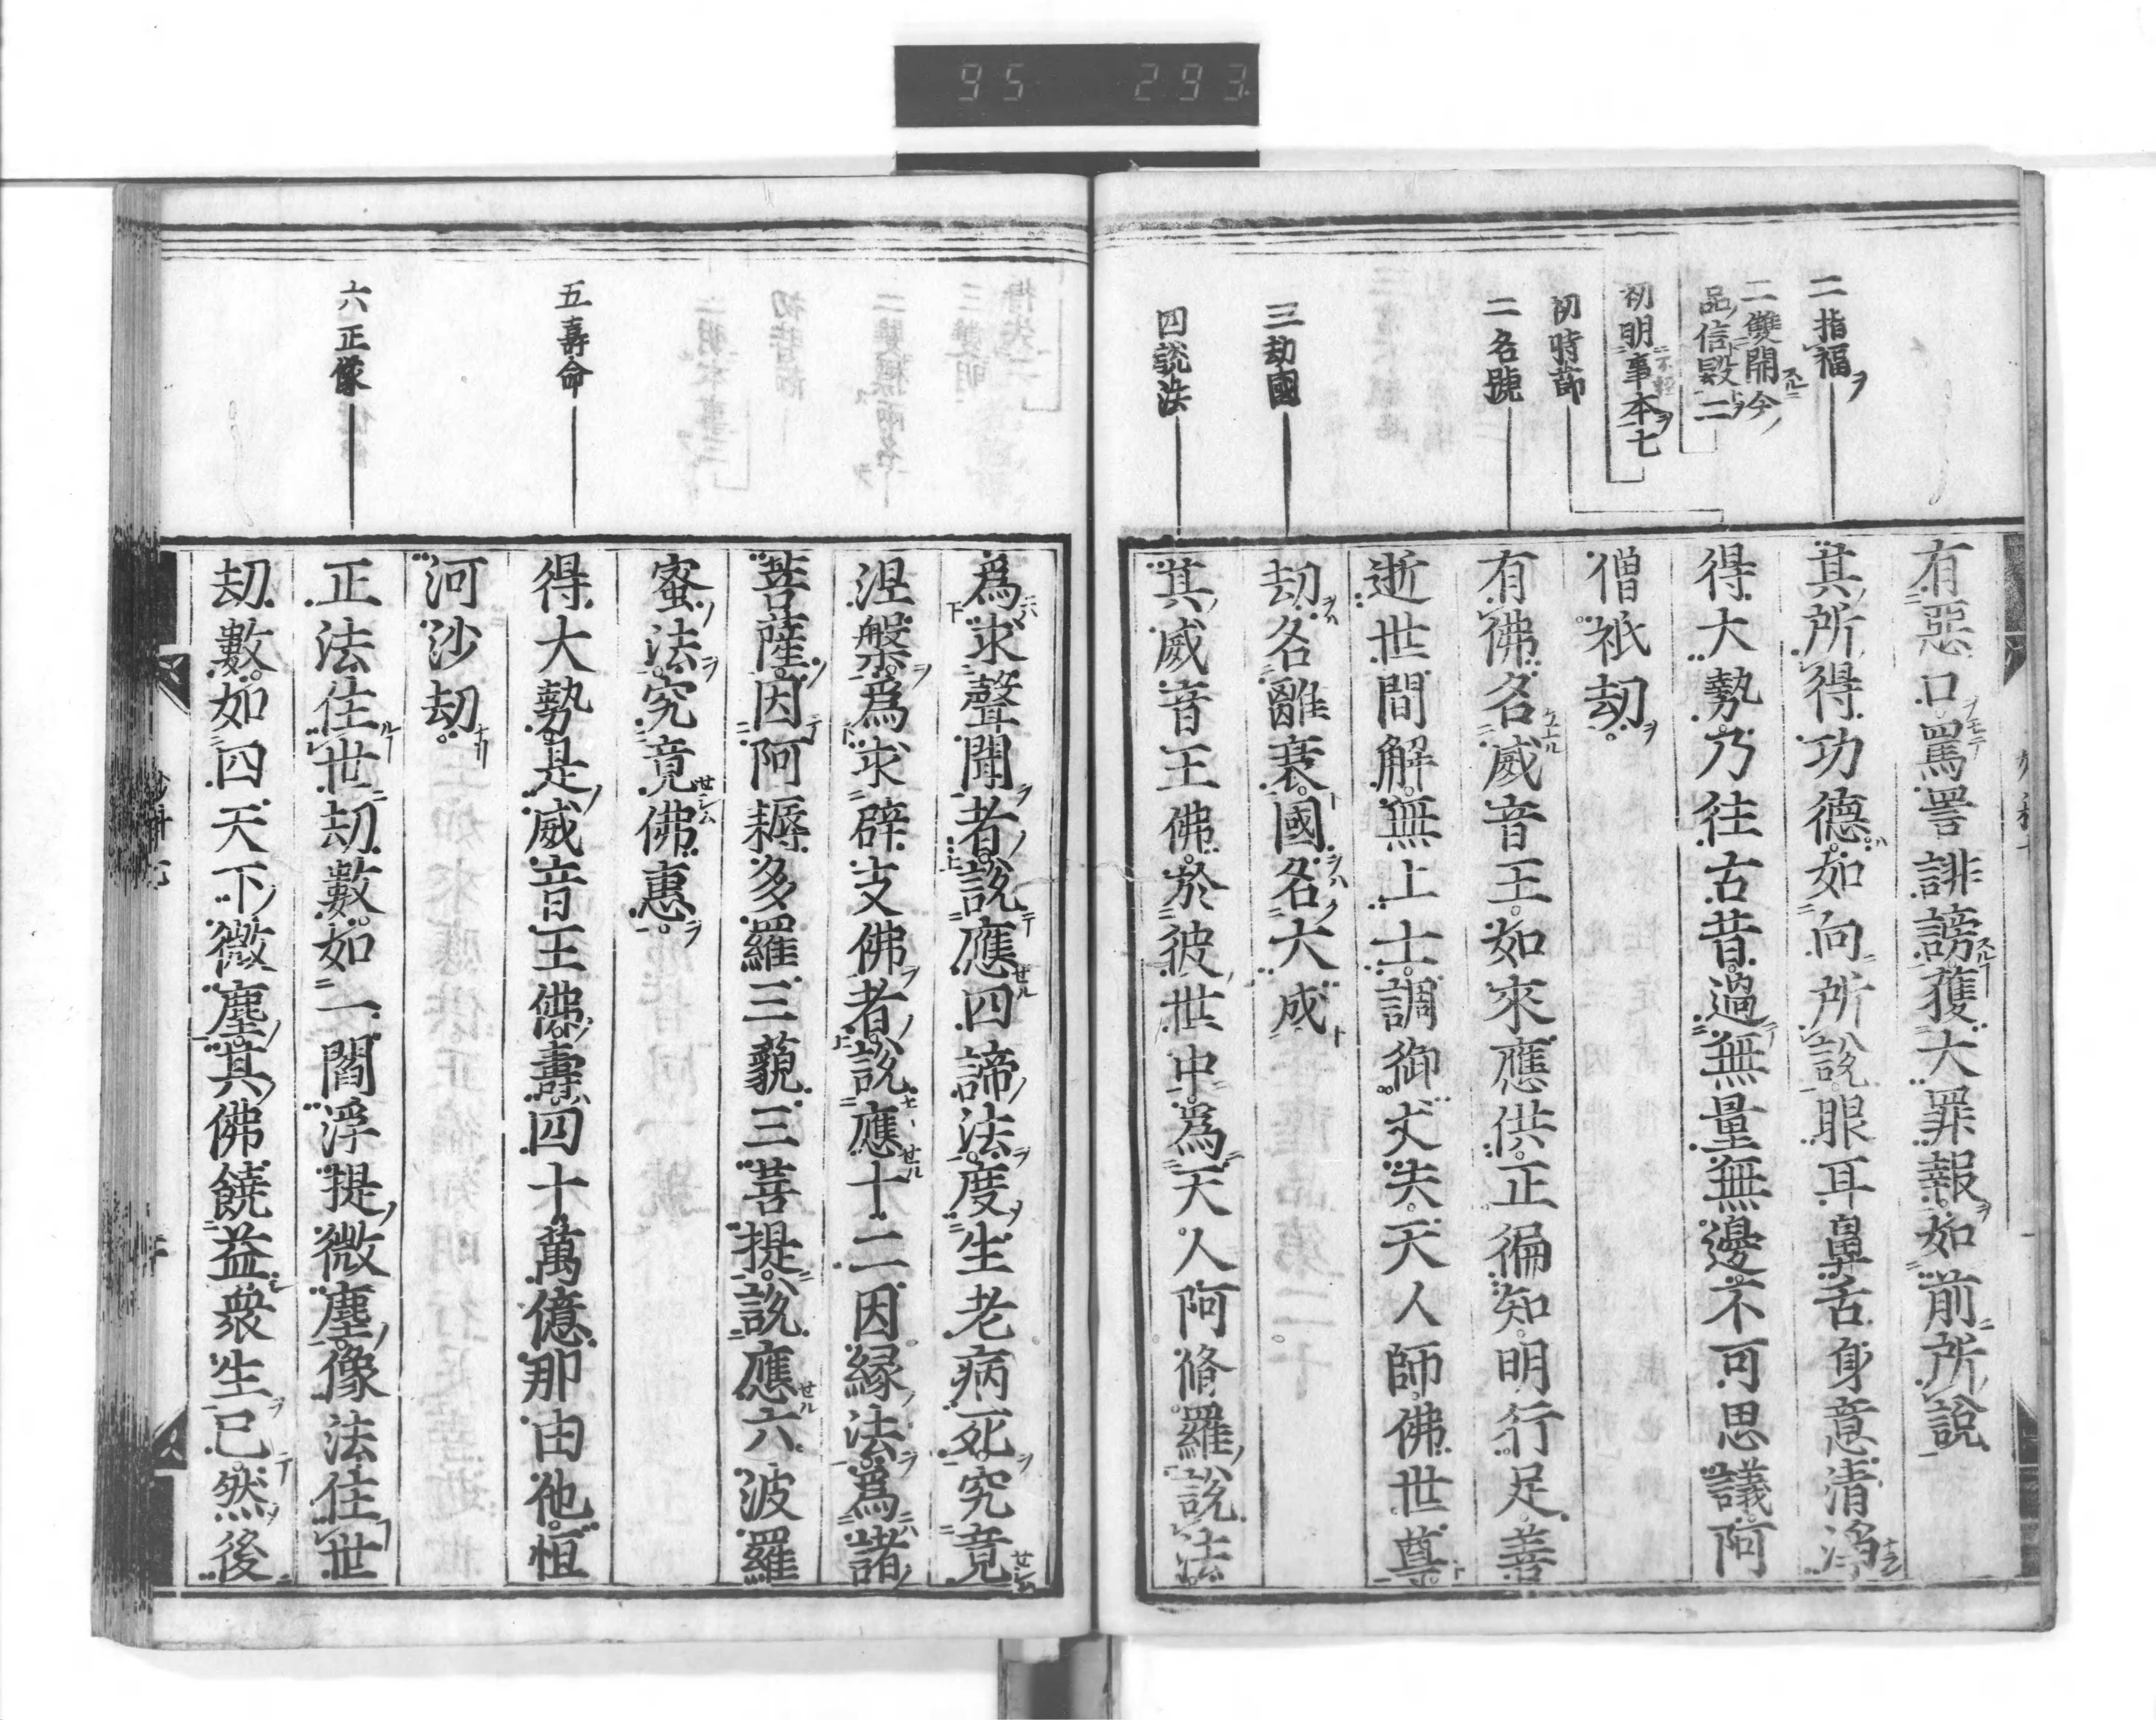 95 293
二指福
二雙開今
品信毀二
初明不輕事本七
初時節
二名號
三劫國
四說法
有惡口罵詈誹謗獲大罪報如前所說
其所得功德如向所說眼耳鼻舌身意清淨
得大勢乃往古昔過無量無邊不可思議阿
僧祇劫
有佛名威音王如來應供正徧知明行足善
逝世間解無上士調御丈夫天人師佛世尊
劫名離衰國名大成
其威音王佛於彼世中爲天人阿脩羅說法
五壽命
六正像
爲求聲聞者說應四諦法度生老病死究竟
涅槃爲求辟支佛者說應十二因緣法爲諸
菩薩因阿耨多羅三藐三菩提說應六波羅
蜜法究竟佛惠
得大勢是威音王佛壽四十萬億那由他恒
河沙劫
正法住世劫數如一閻浮提微塵像法住世
劫數如四天下微塵其佛饒益衆生已然後